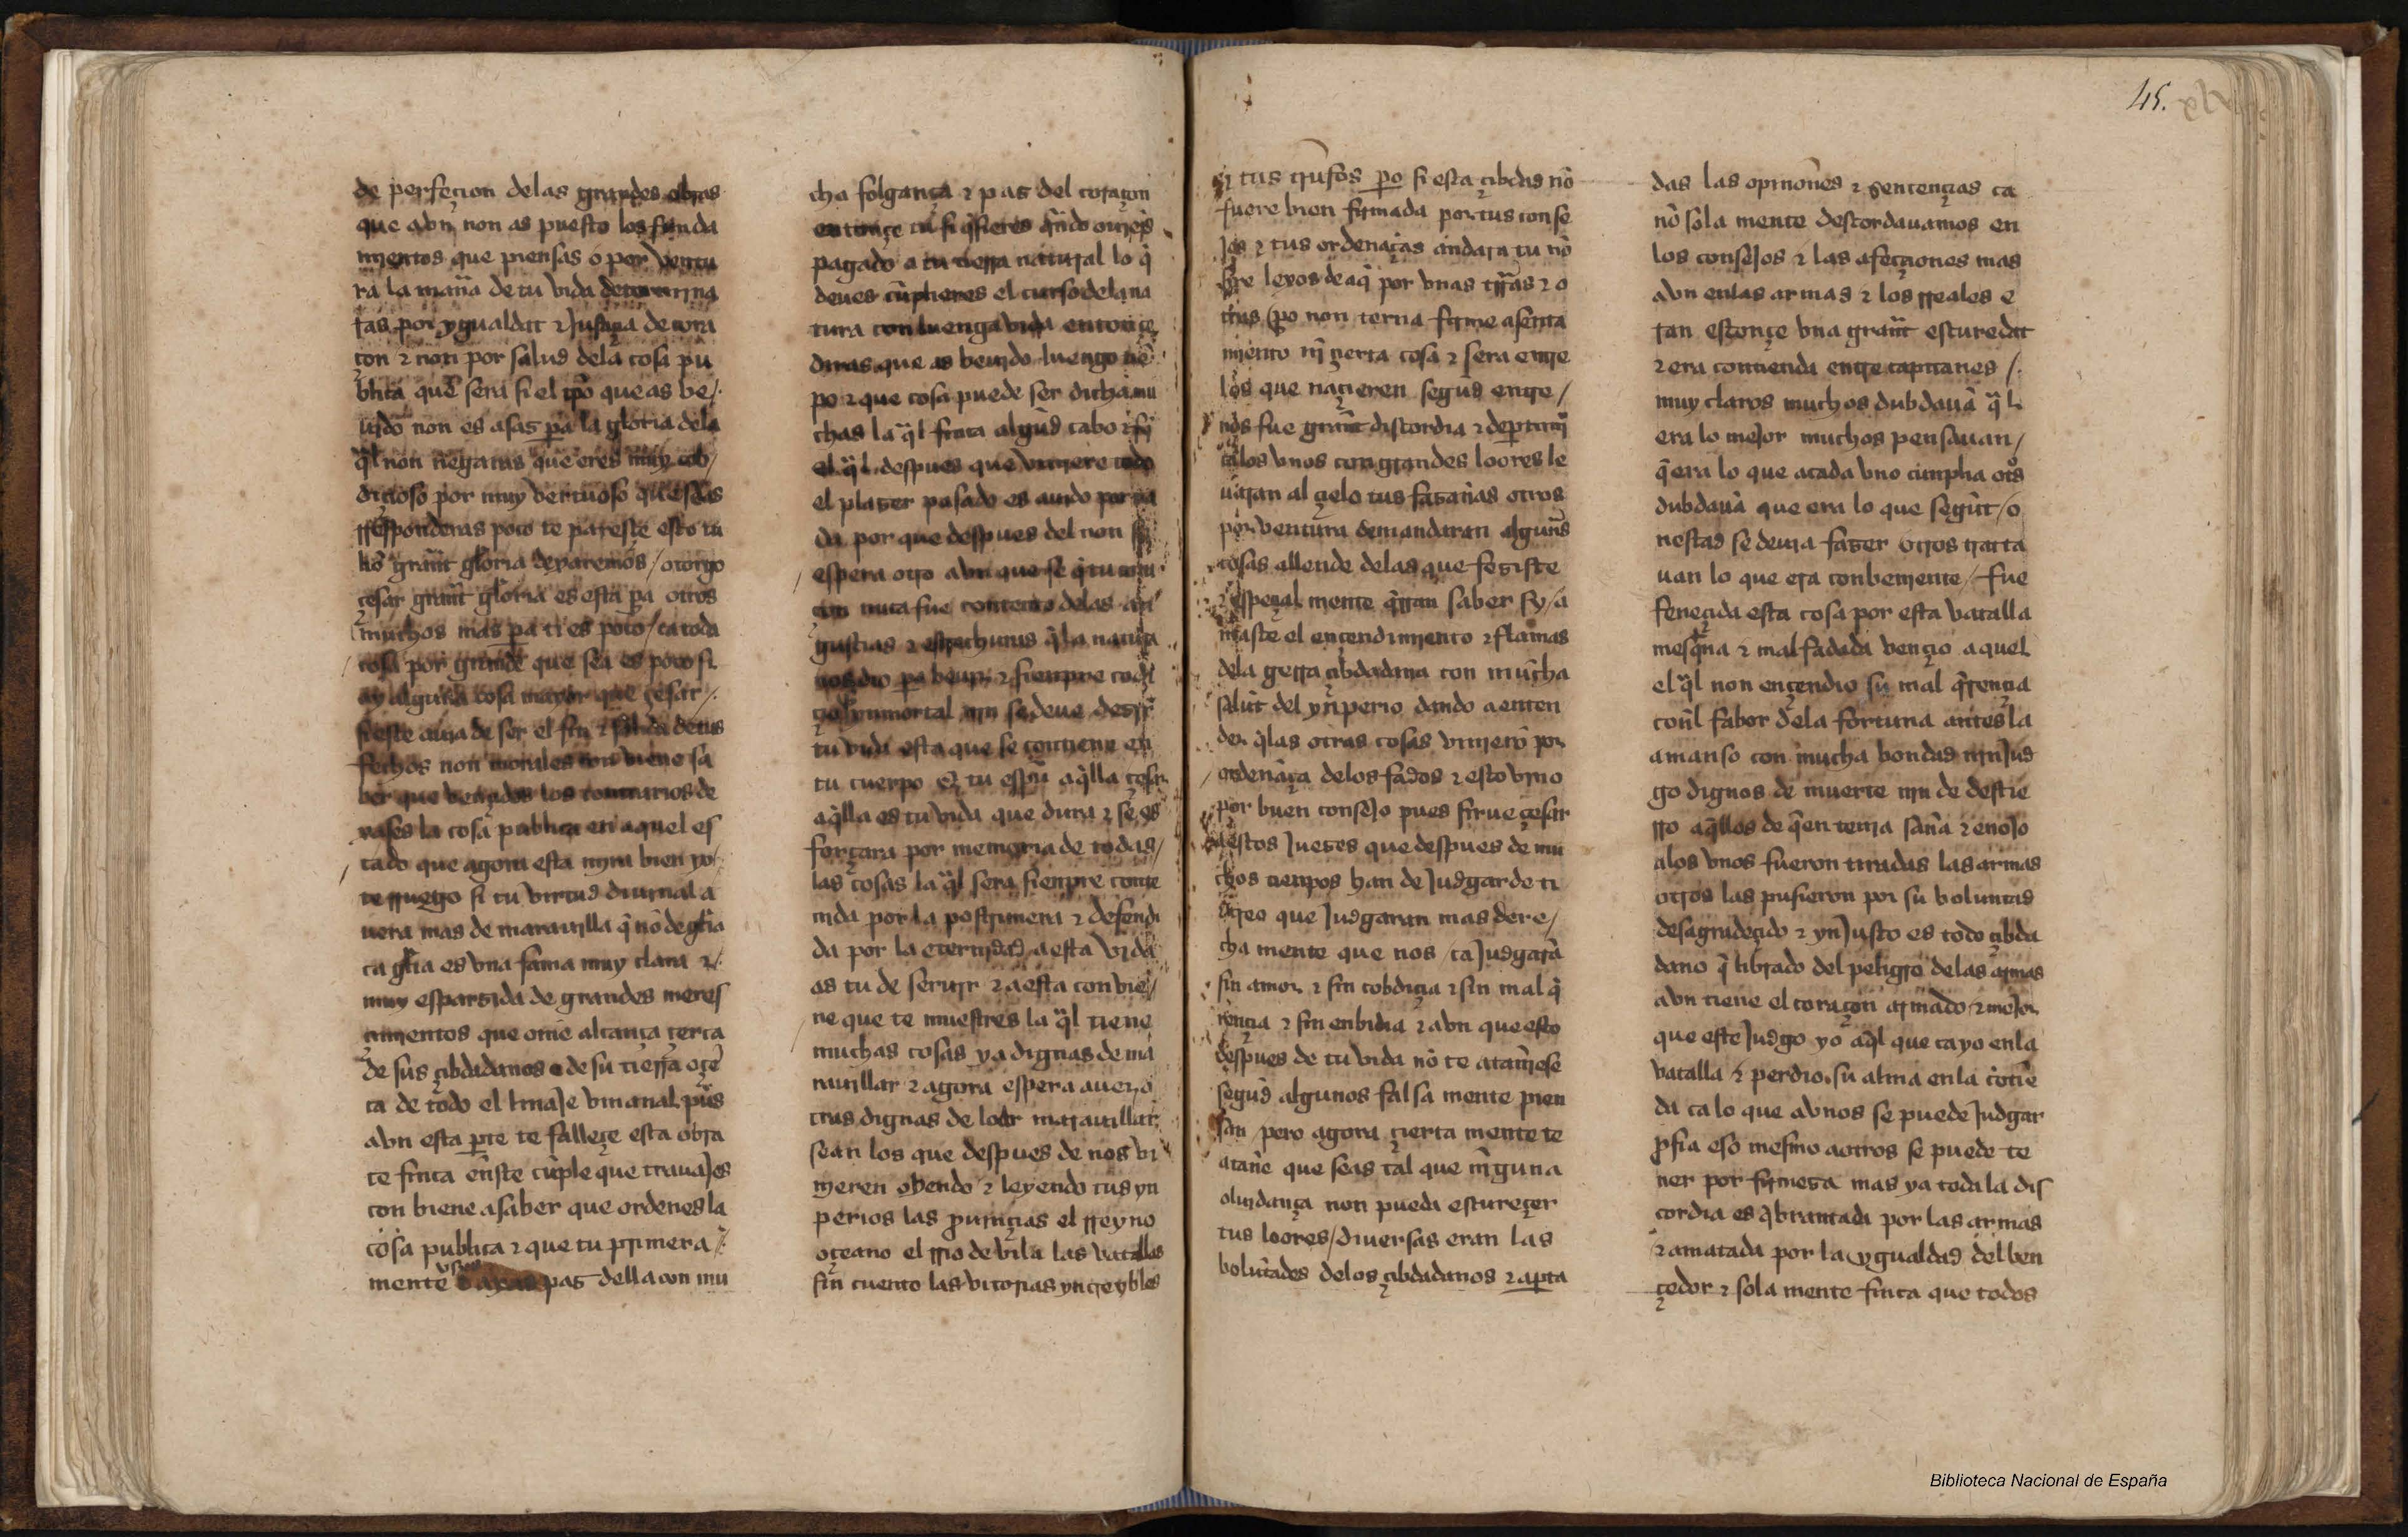 de perfeçion delas grandes obras
que avn non as puesto los funda
mientos que piensas o por ventu
ra la man̄a de tu vida determina
ras por ygualdat ⁊ Justiçia de cora
çon ⁊ non por salud dela cosa pu
blica que sera si el tp̄o que as be /
uido non es asaz pa la gloria dela
q̄l non negaras que eres muy cob /
diçioso por muy vertuoso que seas
rresponderas poco te paresçe esto tu
grant̄ gloria dexaremos / otorgo
çesar grant̄ gloria es esta pa otros
muchos mas pa ti es poco / ca toda
cosa por grande que sea es poco si
ay alguna cosa mayor que çesar /.
si este auia de ser el fin ⁊ salida de tus
fechos non morales con viene sa
ber que vençidos los contrarios de
xases la cosa publica en aquel es
tado que agora esta mira bien yo
te rruego si tu virtud diuinal a
uera mas de marauilla q̄ nō de gl̄ia
ca gl̄ia es vna fama muy clara ⁊ /.
muy esparzida de grandes meres
çimientos que ome alcança çerca
de sus çibdadanos o de su tierra o çer
ca de todo el linaJe vmanal pues
avn esta pte te falleçe esta obra
te finca en̄ste cuple que trauaJes
con biene asaber que ordenes la
cosa publica ⁊ que tu primera /.
mente paz della con mu
cha folgança ⁊ paz del coraçon
entonçe tu si q̄sieres q̄ndo ouieres
pagado a tu tierra natural lo q̄
deues cūplieres el curso dela na
tura con luenga vida entonçe
diras que as beuido luengo tiē
po ⁊ que cosa puede ser dicha mu
chas la q̄l finca algūd cabo ⁊ fin
el q̄l despues que viniere todo
el plazer pasado es auido por na
da por que despues del non se
espera otro avn que se q̄ tu cora
çon nuca fue contento delas an
gustias ⁊ estrechuras q̄ la natura
nos dio pa beuir ⁊ sienpre cod
çio inmortal nin se deue dezir
tu vida esta que se contiene en
tu cuerpo ⁊ tu esp̄u aq̄lla çesar
aq̄lla es tu vida que dura ⁊ se es
forçara por memoria de todas /
las cosas la q̄l sera sienpre conte
nida por la postrimera ⁊ defendi
da por la eternidad a esta vida
as tu de seruir ⁊ a esta con vie /
ne que te muestres la q̄l tiene
muchas cosas ya dignas de ma
rauillar ⁊ agora espera auer o
tras dignas de loor marauillar
sean los que despues de nos vi
nieren oyendo ⁊ leyendo tus yn
perios las prouinçias el rreyno
oçeano el rrio de vila las vatallas
sin cuento las vitorias yncreybles
tus triunfos po si esta çibdad nō
fuere bien firmada por tus conse
Jos ⁊ tus ordenāças andara tu nō
bre lexos de aq̄ por vnas tr̄ras ⁊ o
tras po non terna firme asenta
miento nī çierta cosa ⁊ sera entre
los que naçieren segūd entre /
nos fue grant̄ discordia ⁊ depart
los vnos con grandes loores le
uaran al çielo tus fazan̄as otros
por ventura demandaran alguas
cosas allende delas que feziste
⁊ espeçial mente q̄rran saber sy / a
maste el ençendimiento ⁊ flamas
dela gerra çibdadana con mucha
salut del ynperio dando a enten
der q̄ las otras cosas vinierō por
ordenāça delos fados ⁊ esto vino
por buen conseJo pues sirue çesar
a estos Juezes que despues de mu
chos tienpos han de Judgar de ti
⁊ creo que Judgaran mas dere /
cha mente que nos / ca Judgarā
sin amor ⁊ sin cobdiçia ⁊ sin mal q̄
rençia ⁊ sin enbidia ⁊ avn que esto
despues de tu vida nō te atan̄iese
segūd algunos falsa mente pien
san / pero agora çierta mente te
atan̄e que seas tal que ni guna
oluidança non pueda escureçer
tus loores / diuersas eran las
volūtades delos çibdadanos ⁊ apta
das las opiniōnes ⁊ sentençias ca
nō sola mente descordauamos en
los conseJos ⁊ las afecçiones mas
avn en las armas ⁊ los rreales e
ran estonçe vna grant̄ escuredat
⁊ era contienda entre capitanes /.
muy claros muchos dubdauā q̄ l
era lo meJor muchos pensauan /
q̄ era lo que acada vno cunplia otos
dubdauā que era lo que segūt / o
nestad se deuia fazer otros trata
uan lo que era conbeniente / fue
feneçida esta cosa por esta vatalla
mesq̄na ⁊ mal fadada vençio aquel
el q̄l non ençendio su mal q̄rençia
con̄l fabor dela fortuna antes la
amanso con mucha bondad nin Jud
go dignos de muerte nin de destie
rro aq̄llos de q̄en tenia san̄a ⁊ enoJo
alos vnos fueron tiradas las armas
otros las pusieron por su boluntad
desagradeçido ⁊ ynJusto es todo çibda
dano q̄ librado del peligro delas armas
avn tiene el coraçon armado ⁊ meJor
que este Judgo yo aq̄l que cayo en la
vatalla ⁊ perdio su alma en la cōtiē
da ca lo que avnos se puede Judgar
pfia eso mesmo aotros se puede te
ner por firmeza mas ya toda la dis
cordia es q̄brantada por las armas
⁊ amatada por la ygualdad del ben
çedor ⁊ sola mente finca que todos
45.
Biblioteca Nacional de España